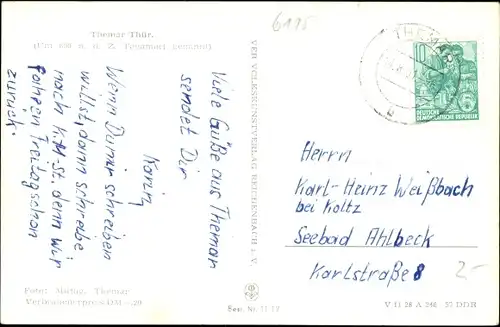 Themar Thür.
(Um 800 n. d. Z. Tengmari genannt)
Viele Grüße aus Themar
sendet Dir
Karin,
Wenn Du mir schreiben
willst, dann schreibe
nach K.M. St. denn wir
fahren Freitag schon
zurück.
Foto: Themar
Verbraucherpreis DM -.20
VEB VOLKSKUNSTVERLAG REICHENBACH i. V.
Ser. Nr. 11 12
6115
THEMAR
10
DEUTSCHE
DEMOKRATISCHE REPUBLIK
Herrn
Karl-Heinz Weißbach
bei Koltz
Seebad Ahlbeck
Karlstraße 8
2-
V 11 28 A 246 57 DDR